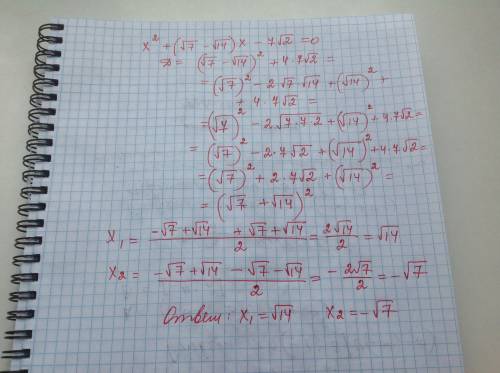 x² + (√7 - √14) x - 7√2 = 0
D = (√7 - √14)² + 4·7√2 =
= (√7)² - 2√7·√14 + (√14)² +
+ 4·7√2 =
= (√7)² - 2√7·7·2 + (√14)² + 4·7√2 =
= (√7)² - 2·7√2 + (√14)² + 4·7√2 =
= (√7)² + 2·7√2 + (√14)² =
= (√7 + √14)²
x₁ = (-√7 + √14 + √7 + √14)/2 = 2√14/2 = √14
x₂ = (-√7 + √14 - √7 - √14)/2 = -2√7/2 = -√7
Ответ: x₁ = √14 x₂ = -√7